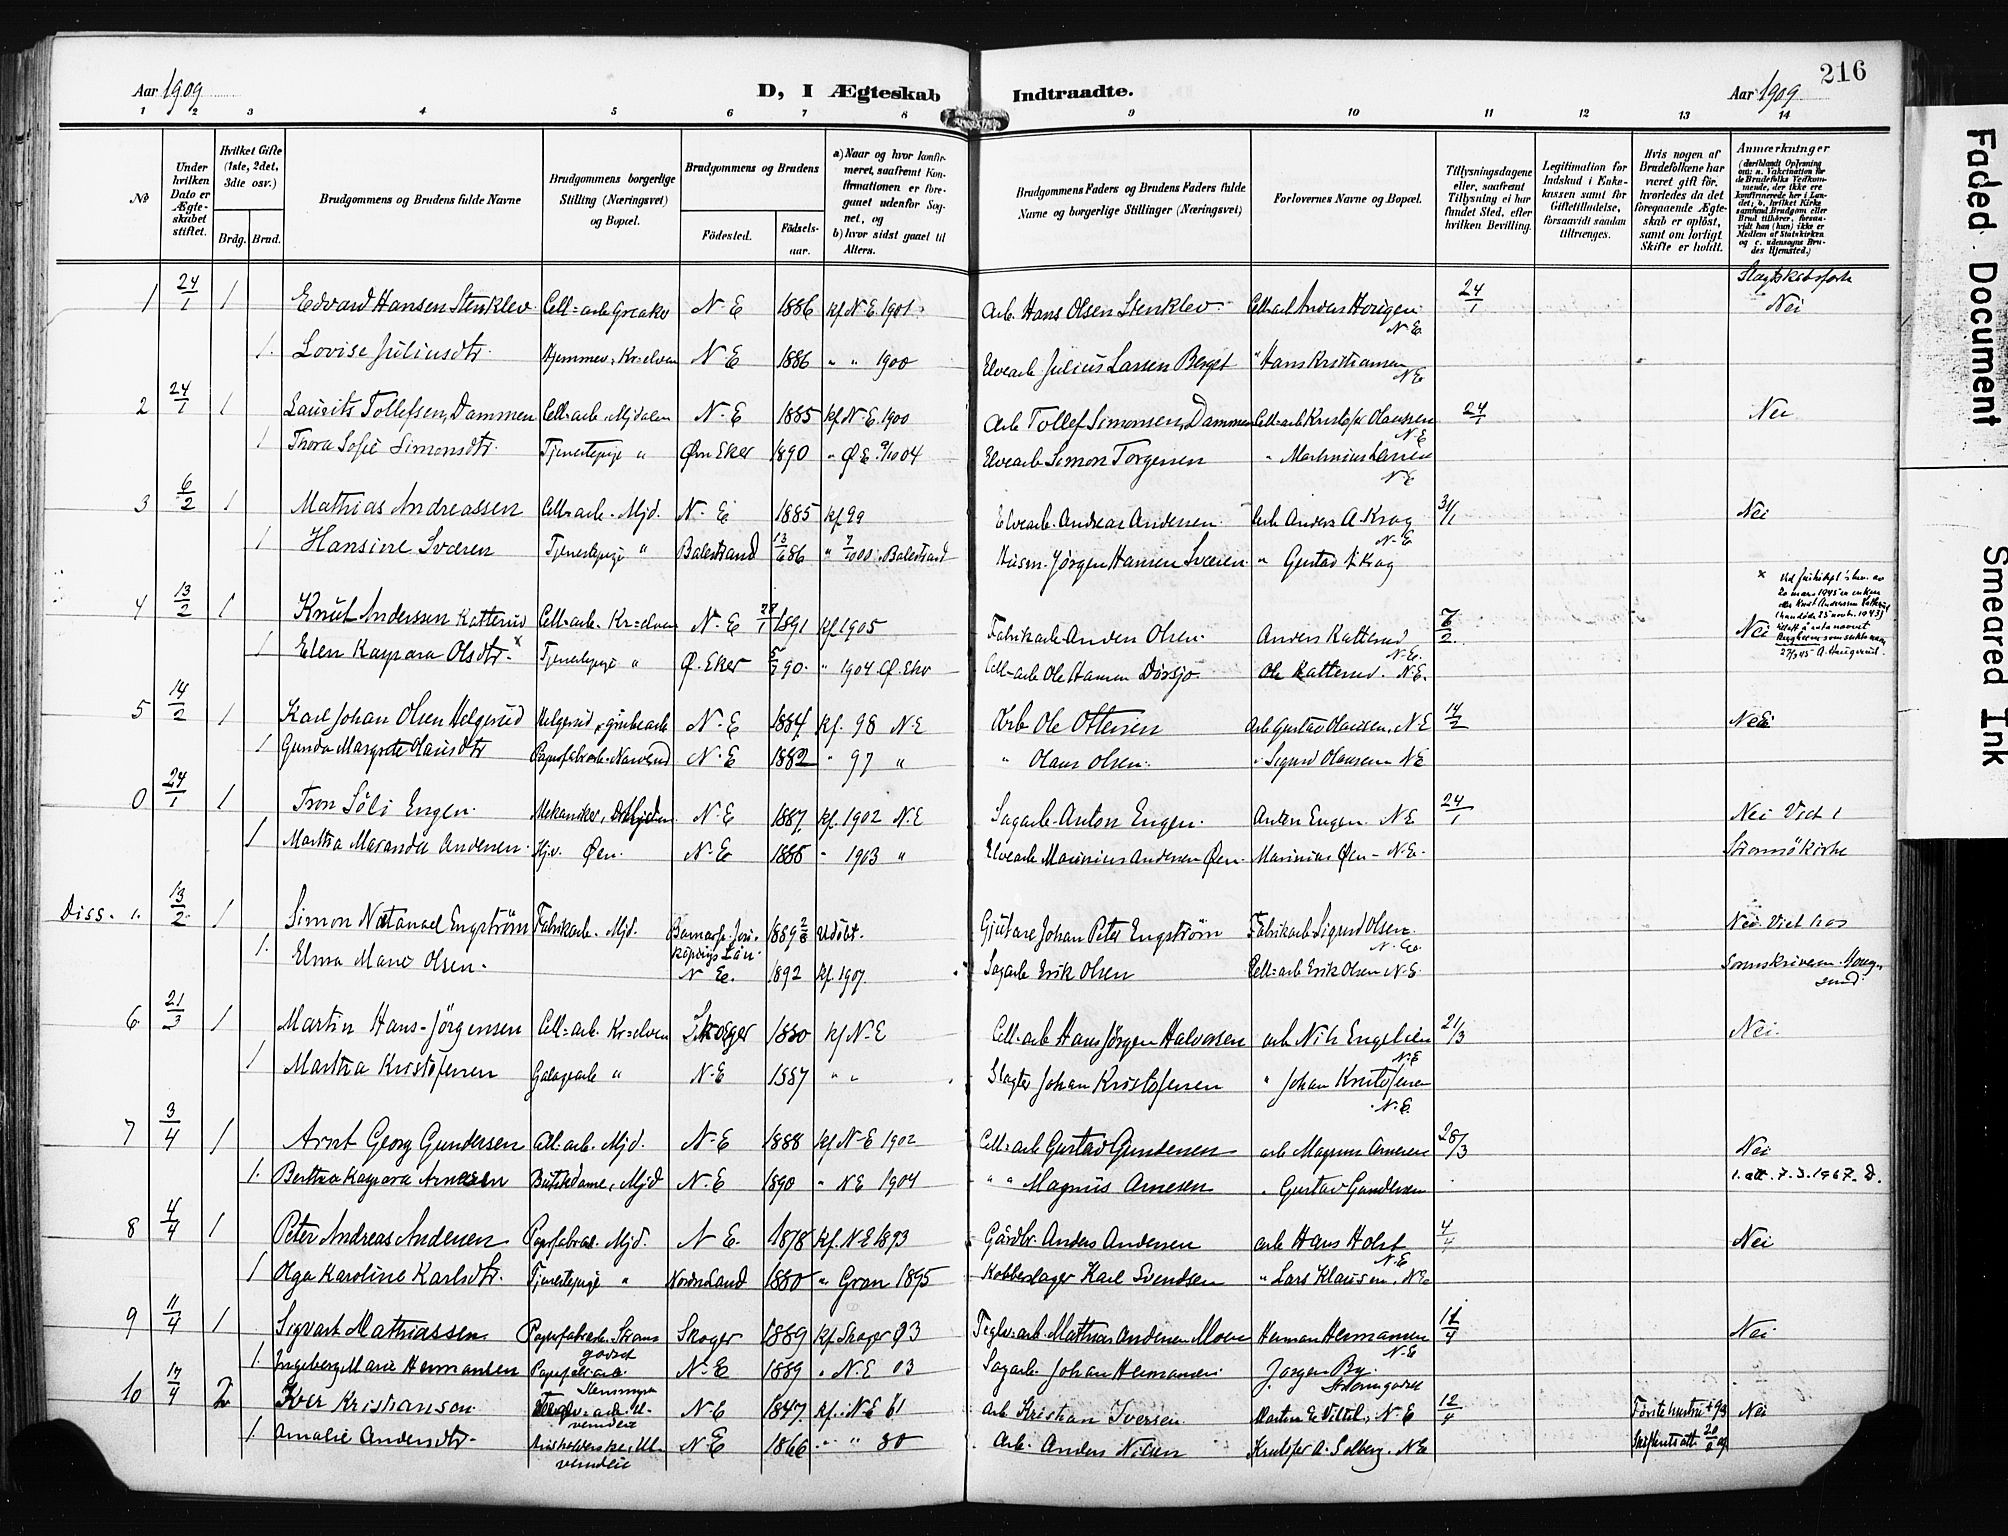 216
Aar 1909
D, I Ægteskab Indtraadte.
Aar 1909
1 2 3 4 5 6 7 8 9 10 11 12 13 14
No
Under hvilken Dato er Ægteskabet stiftet.
Hvilket Gifte (1ste, 2det, 3die osv.)
Brdg. Brud.
Brudgommens og Brudens fulde Navne
Brudgommens borgerlige Stilling (Næringsvei) og Bopæl.
Brudgommens og Brudens
Fødested.
Fødselsaar.
a) Naar og hvor konfirmeret, saafremt Konfirmationen er foregaaet udenfor Sognet, og
b) hvor sidst gaaet til Alters.
Brudgommens Faders og Brudens Faders fulde Navne og borgerlige Stillinger (Næringsvei)
Forlovernes Navne og Bopæl.
Tillysningsdagene eller, saafremt Tillysning ei har fundet Sted, efter hvilken Bevilling.
Legitimation for Indskud i Enkekassen samt for Giftetilladelse, forsaavidt saadan tiltrænges.
Hvis nogen af Brudefolkene har været gift før, hvorledes da det foregaaende Ægteskab er opløst, samt om lovligt Skifte er holdt.
Anmærkninger
Slagtskabsforh.
1 24/1 1 Edvard Hansen Stenklev Cell=arb Greaker N-E 1886 kf N.E. 1901 Arb. Hans Olsen Stenklev Cell=arb Anders Horigen N.E. 24/1 Nei
1. Lovise Juliusdtr. Hjemmev. Kr=elven N-E 1886 " " 1900 Elvearb Julius Larsen Berget " Hans Kristiansen N.E.
2 24/1 1 Laurits Tollefsen, Dammen Cell=arb. Mjdalen N-E 1885 kf N-E. 1900 Arb Tollef Simonsen, Dammen Cell=arb Kristofer Olaussen N.E 24/1 Nei
1. Thora Sofie Simonsdtr. Tjenestepige " Øvr Eker 1890 " Ø E. 9/10 04 Elvearb Simon Torgersen " Martinius Larsen N.E
3 6/2 1 Mathias Andreassen Cell=arb. Mjd. N-E 1885 kf 99 Elvearb. Andreas Andersen Arb Anders A. Krog N-E. 31/1 Nei
1 Hansine Sværen Tjenestepige " Balestrand 13/6 86 " 7/10 00. Balestrand Husm. Jørgen Hansen Sværen " Gustav A Krog
4 13/2 1 Knut Anderssen Katterud Cell=arb. Kr=elven N-E 29/1 1891 kf 1905 Fabrikarb Anders Olsen Anders Katterud N.E. 7/2 Nei
× Ved justisdept's brev av 20 mars 1945 er enken etter Knut Anderssen Katterud (han døde 25 novbr. 1943) tillatt å anta navnet Berghem som slektsnavn 27/3 45 A. Haugerud.
1 Elen Kaspara Olsdtr.× Tjenestepige " Ø. Eker 5/7 90. " 1904 Ø. Eker Cell=arb Ole Hansen Dørsjø Ole Katterud. N.E.
5 14/2 1 Karl Johan Olsen Helgerud Helgerud, grubearb N-E 1884 kf. 98 N E Arb Ole Ottersen Arb Gustav Olaussen, N.E 14/2 Nei
1 Gunda Margrete Olausdtr Papirfabarb. Narverud N-E 1882 " 97 " " Olaus Olsen. " Sigurd Olaussen N E
0 24/1 1 Tron Søli Engen. Mekaniker, N-E 1887 kf. 1902 N.E Sagarb. Anton Engen. Anton Engen N E 24/1 Nei Viet i
1 Martha Maranda Andersen. Hj.v. Øen. N-E 1885 " 1903 " Elvearb Marinius Andersen Øen. Marinius Øen - N.E. Strømsø kirke
Diss. 1. 13/2 1 Simon Natanael Engström Fabrikarb. Mjd. Barnarp. Jönköpings Län 1889 2/8 Udöbt. Gjutare Johan Peter Engström Fabrikarb Sigurd Olsen N.E. Nei. Viet hos
1. Elma Marie Olsen. N E. 1892 kf. 1907. Sagarb Erik Olsen Cell=arb Erik Olsen N-E. Sorenskriveren Hougsund.
6 21/3 1 Martin Hans-Jörgensen Cell=arb. Kr=elven Skoger 1880 kf N-E Cell=arb Hans Jørgen Halvorsen arb Nils Engelien N.E 21/3 Nei.
1 Martha Kristofersen " N.E 1887 " " Slagter Johan Kristofersen " Johan Kristofersen N.E.
7 3/4 1 Arnt Georg Gundersen Cell.arb. Mjd. N-E 1888 kf N-E 1902 Cell=arb Gustav Gundersen arb Magnus Arnesen 28/3 Nei
1. Berthea Kaspara Arnesen Butikdame, Mjd N-E 1890 " N E 1904 " " Magnus Arnesen " Gustav Gundersen 1. att. 7.3.1967. D.
8 4/4 1 Peter Andreas Andersen Papirfabrarb. Mjd. N E. 1878 kf. N-E 1893 Gårdbr. Anders Andersen arb Hans Holst N.E 4/4 Nei
1 Olga Karoline Karlsdtr. Tjenestepige " Nordsland 1880 " Gran 1895 Kobberslager Karl Svendsen " Lars Klausen. N.E
9 11/4 1 Sigvart Mathiassen Papirfabarb. Strømsgodset Skoger 1889 kf. Skoger 03 Teglv.arb. Mathias Andersen Moen Herman Hermansen N.E 11/4 Nei
1. Ingeborg Marie Hermansen Papirfab.arb. Stensmyra N-E 1889 " N.E 03 Sagarb Johan Hermansen Jørgen By. Strømsgodset
10 17/4 2 Iver Kristiansen N-E 1847. kf. N E 61 Arb Kristian Iversen Morten E Vittel, N.E 12/4 Første hustru † 93 Nei
1. Amalie Andersdtr. N-E 1866 " " 80 Arb. Anders Nilsen Kristofer A. Solberg. N E Skifteratt. 20/2 09
Faded Document
Smeared Ink